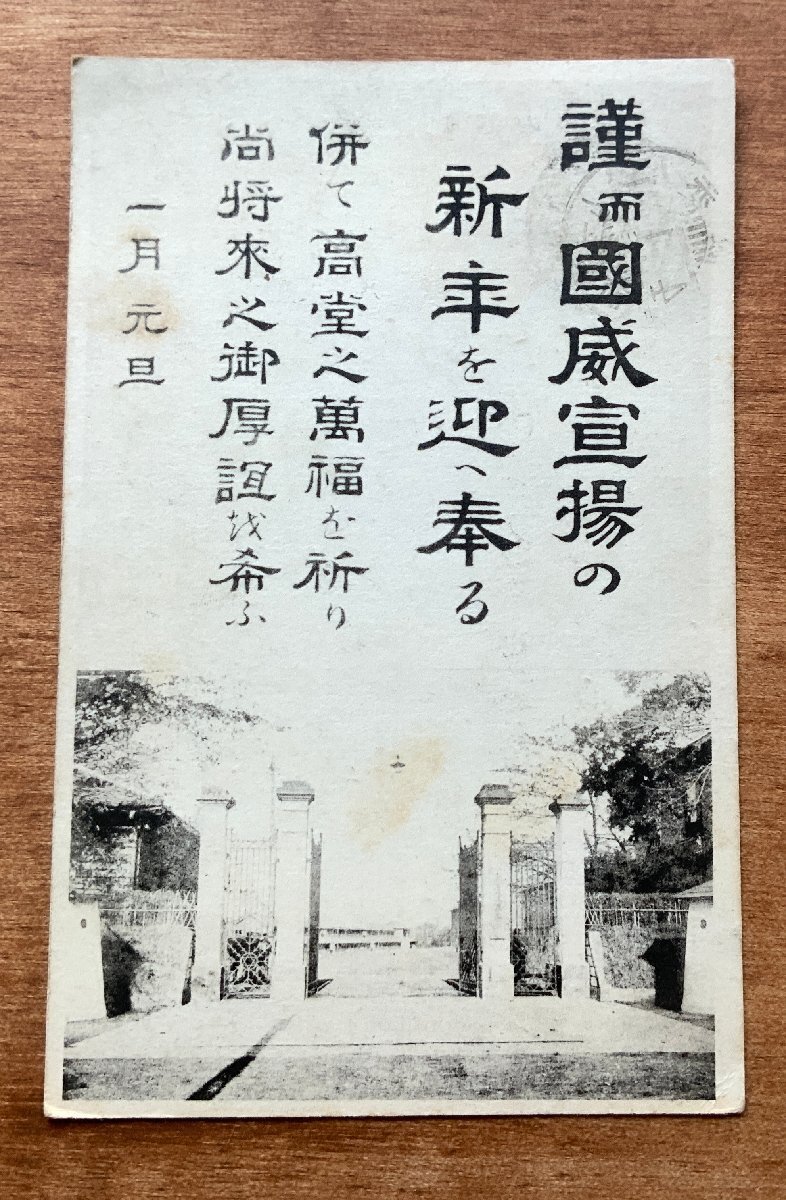 謹而國威宣揚の
新年を迎へ奉る
併て高堂之萬福を祈り
尚將來之御厚誼を希ふ
一月元旦